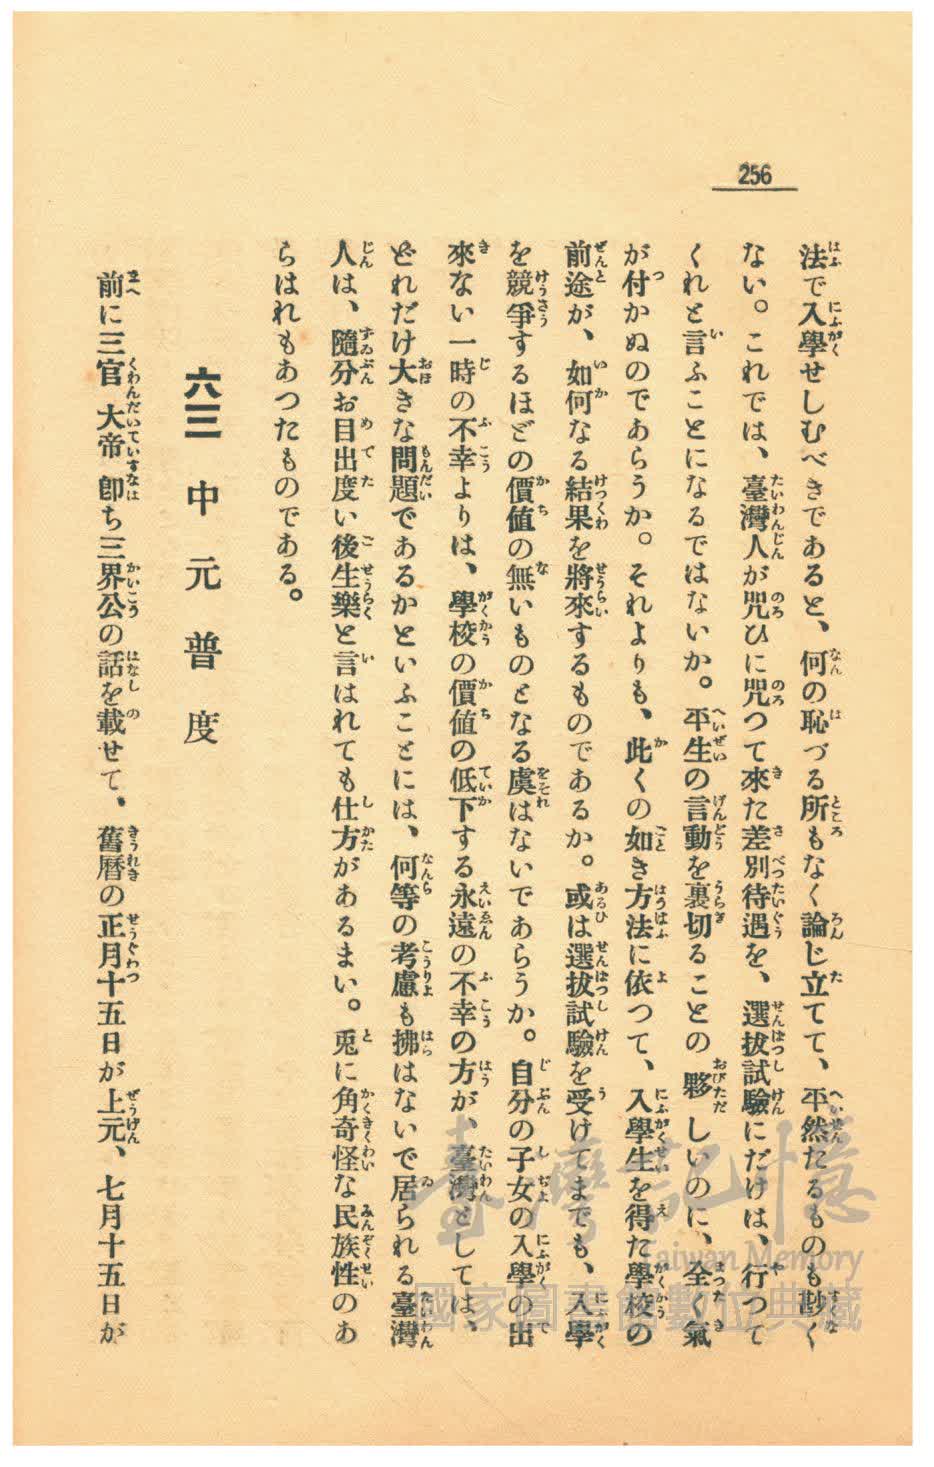 256
法で入學せしむべきであると、何の恥づる所もなく論じ立てて、平然たるものも尠く
ない。これでは、臺灣人が咒ひに咒つて來た差別待遇を、選拔試驗にだけは、行つて
くれと言ふことになるではないか。平生の言動を裏切ることの夥しいのに、全く氣
が付かぬのであらうか。それよりも、此くの如き方法に依つて、入學生を得た學校の
前途が、如何なる結果を將來するものであるか。或は選拔試驗を受けてまでも、入學
を競爭するほどの價値の無いものとなる虞はないであらうか。自分の子女の入學の出
來ない一時の不幸よりは、學校の價値の低下する永遠の不幸の方が、臺灣としては、
どれだけ大きな問題であるかといふことには、何等の考慮も拂はないで居られる臺灣
人は、隨分お目出度い後生樂と言はれても仕方があるまい。兎に角奇怪な民族性のあ
らはれもあつたものである。
六三 中元普度
前に三官大帝卽ち三界公の話を載せて、舊曆の正月十五日が上元、七月十五日が
臺灣記憶
Taiwan Memory
國家圖書館數位典藏